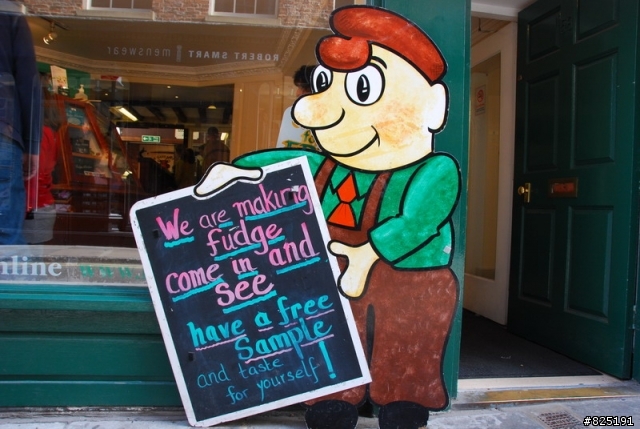 ROBERT SMART menswear
We are making
fudge
come in and
see
have a free
Sample
and taste
for yourself!
#825191